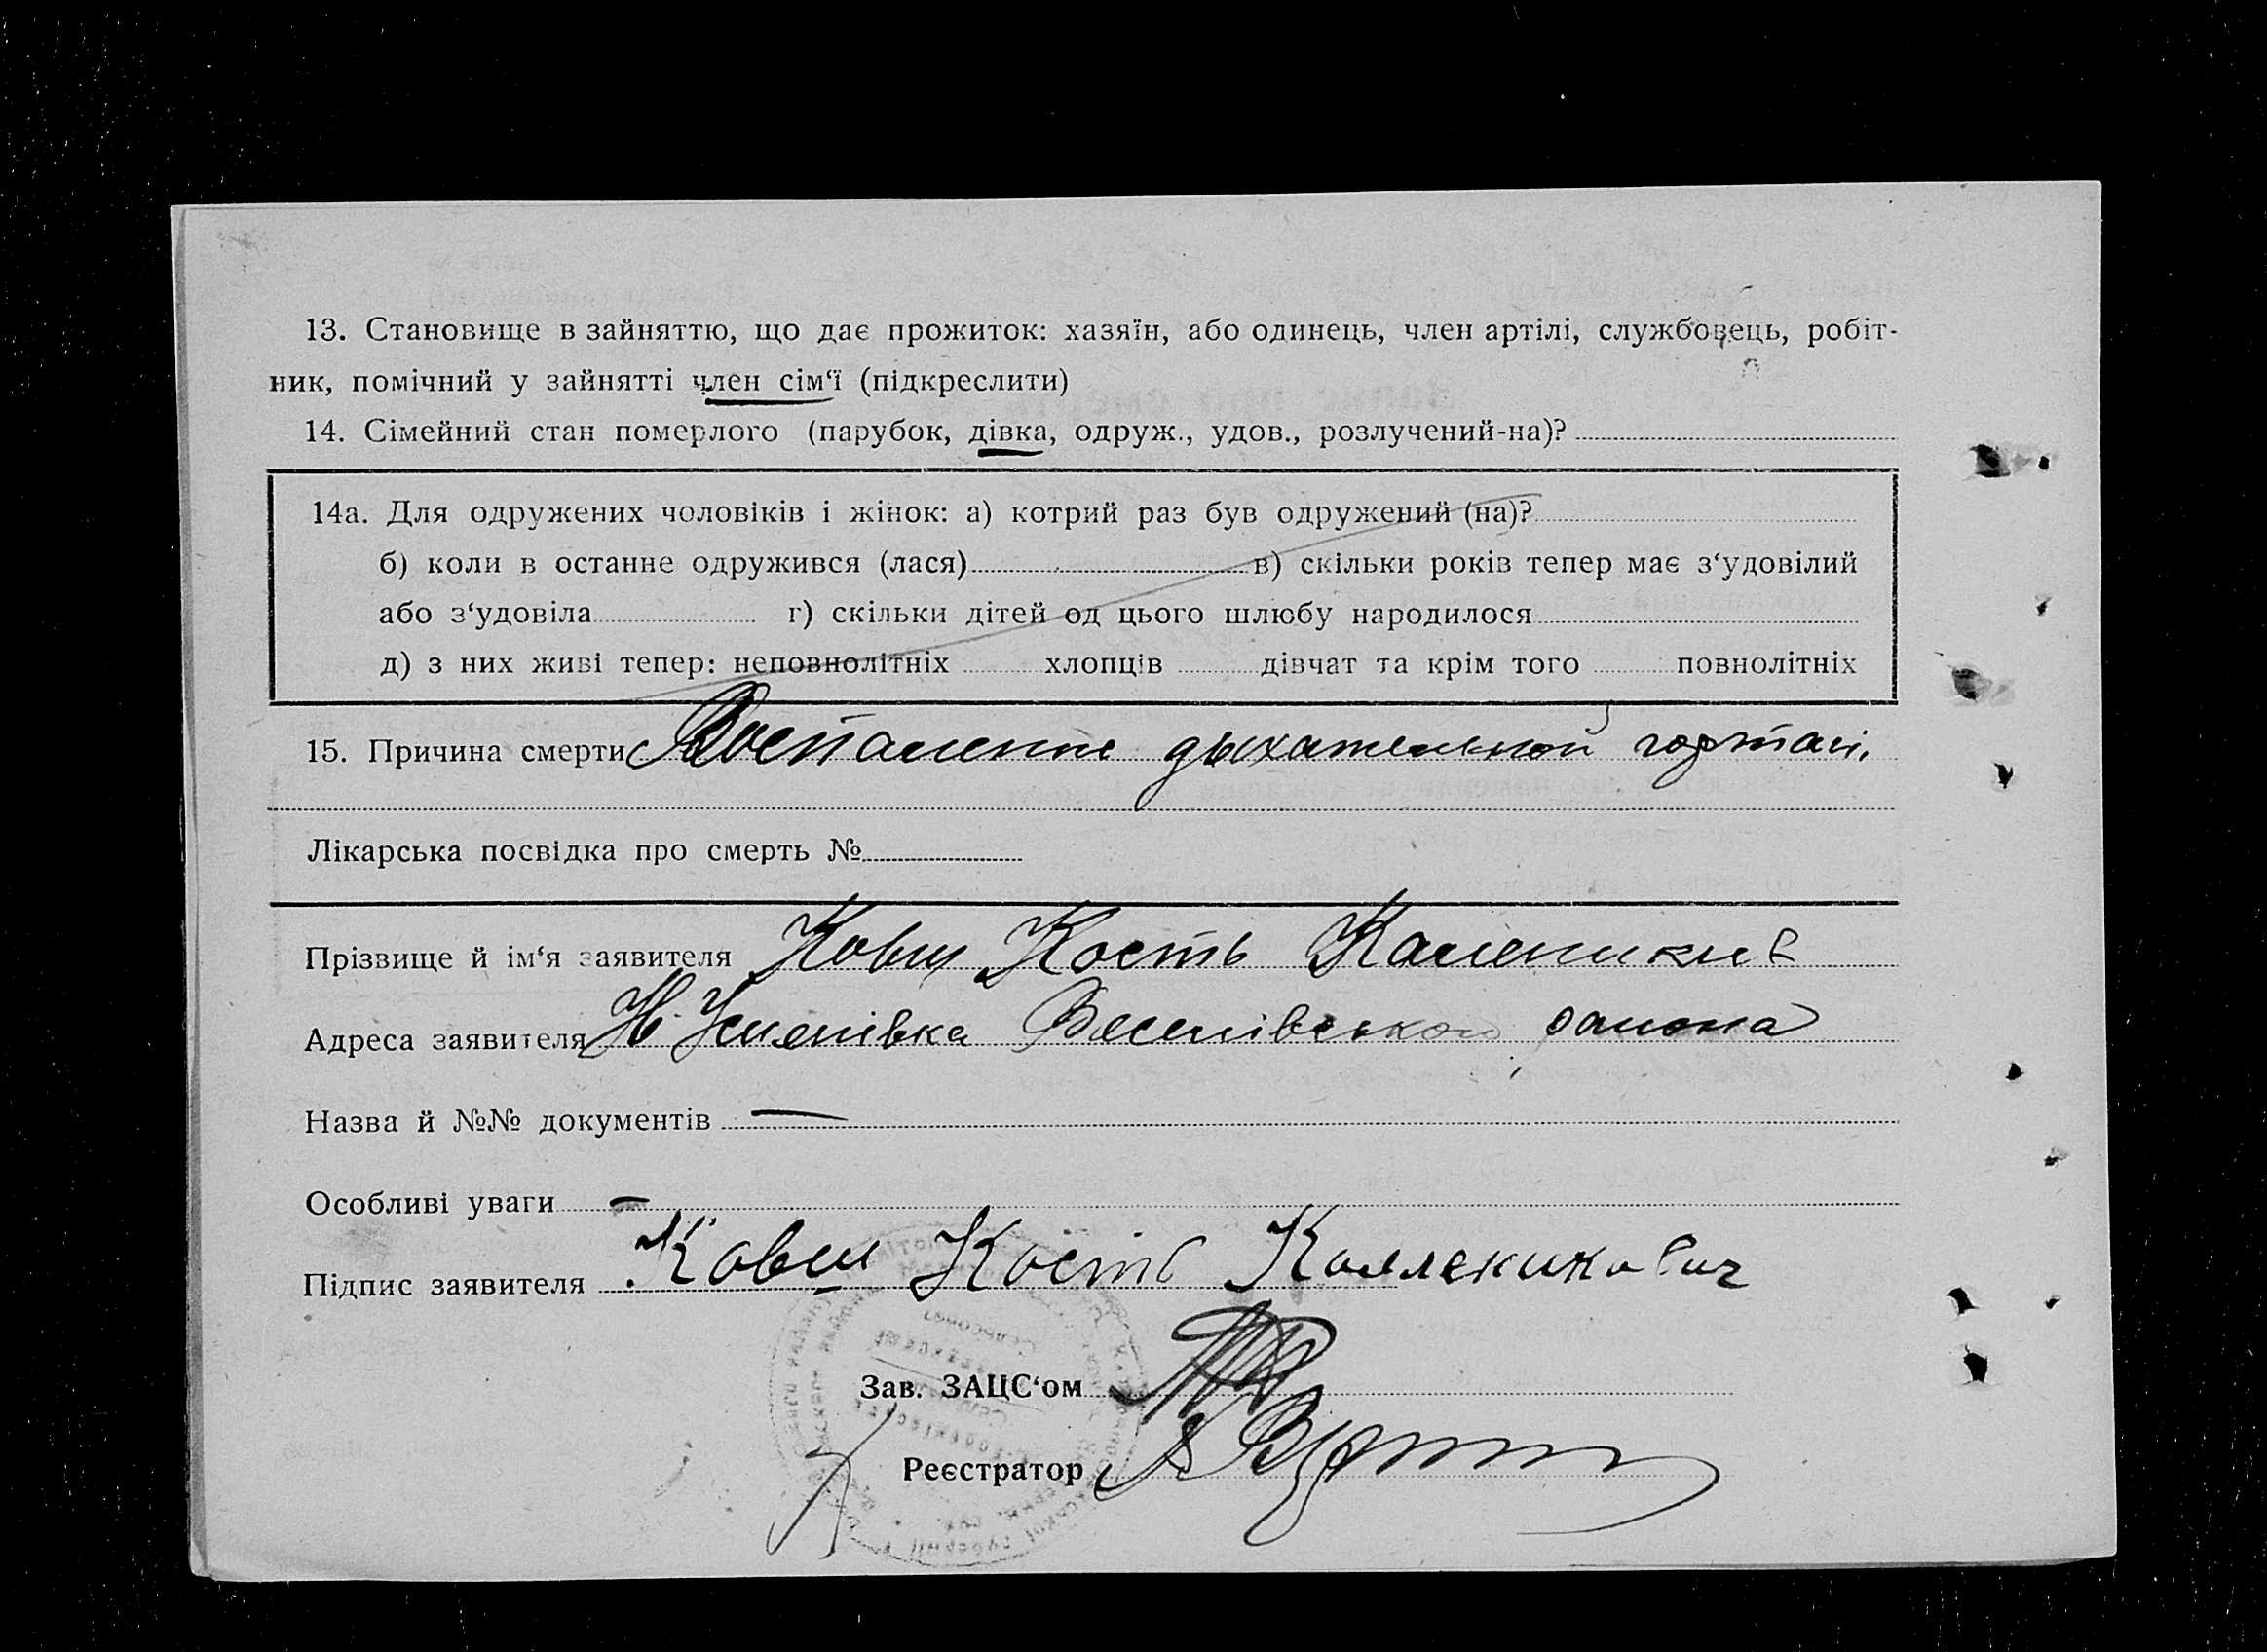 13. Становище в зайняттю, що дає прожиток: хазяїн, або одинець, член артілі, службовець, робіт-
ник, помічний у зайнятті член сім‘ї (підкреслити)
14. Сімейний стан померлого (парубок, дівка, одруж., удов., розлучений-на)?
14а. Для одружених чоловіків і жінок: а) котрий раз був одружений (на)?
б) коли в останне одружився (лася) в) скільки років тепер має з‘удовілий
або з‘удовіла г) скільки дітей од цього шлюбу народилося
д) з них живі тепер: неповнолітніх хлопців дівчат та крім того повнолітніх
15. Причина смерти Воспаление дыхательной гортані.
Лікарська посвідка про смерть №
Прізвище й ім‘я заявителя Ковш Кость Каленików
Адреса заявителя Н. Успенівка Веселівського района
Назва й №№ документів —
Особливі уваги —
Підпис заявителя Ковш Кость Каленикович
Зав. ЗАЦС‘ом
Реєстратор